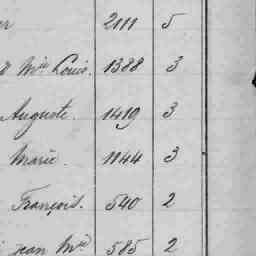 2111 5
Wm Louis. 1388 3
Auguste. 1419 3
Marie. 1144 3
François. 540 2
Jean 585 2